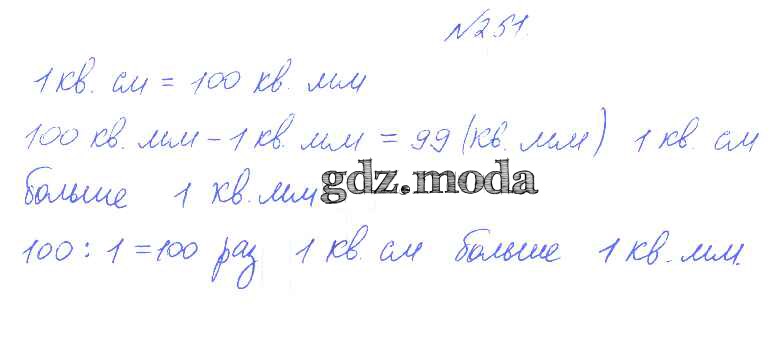 №251.
1 кв. см = 100 кв. мм
100 кв. мм - 1 кв. мм = 99 (кв. мм) 1 кв. см
больше 1 кв. мм
gdz.moda
100 : 1 = 100 раз 1 кв. см больше 1 кв. мм.